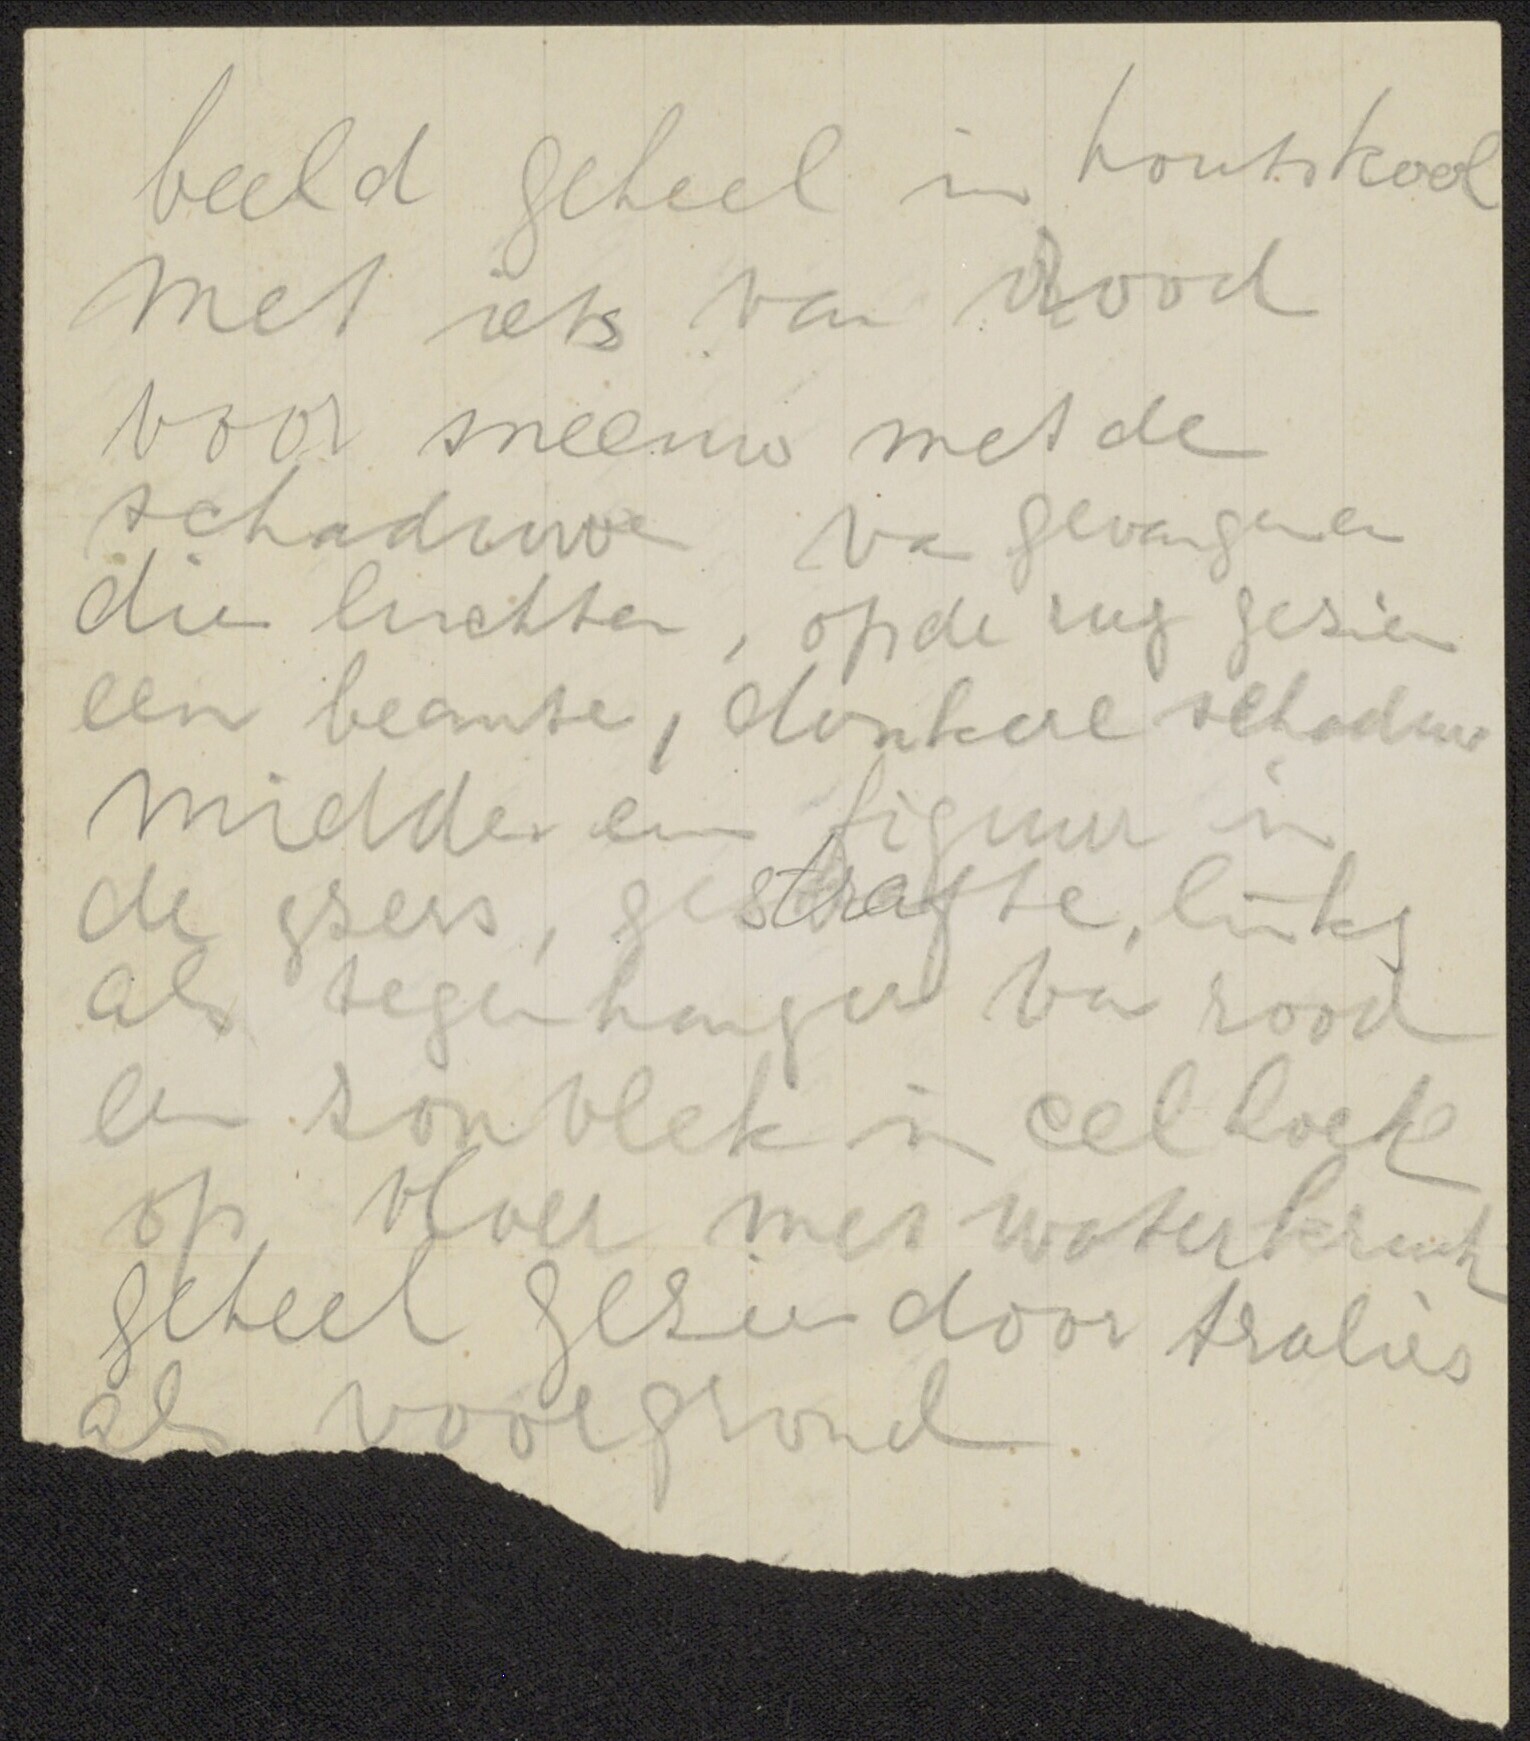 beeld geheel in houtskool
met iets van Rood
voor sneeuw met de
schaduwe va gevangenen
die luchten, op de rug gezien
een beamte, donkere schaduw
midden een figuur in
de ysers, gestrafte, links
als tegenhanger van rood
een zonvlek in cel hoek
op vloer met waterkruik
geheel gezien door tralies
als voorgrond